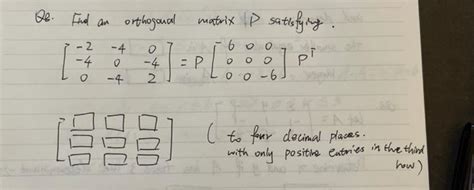 Q2. Find an orthogonal matrix P satisfying.
[ -2 -4 0
-4 0 -4
0 -4 2 ] = P [ 6 0 0
0 0 0
0 0 -6 ] P^T
( to four decimal places.
with only positive entries in the third
row)